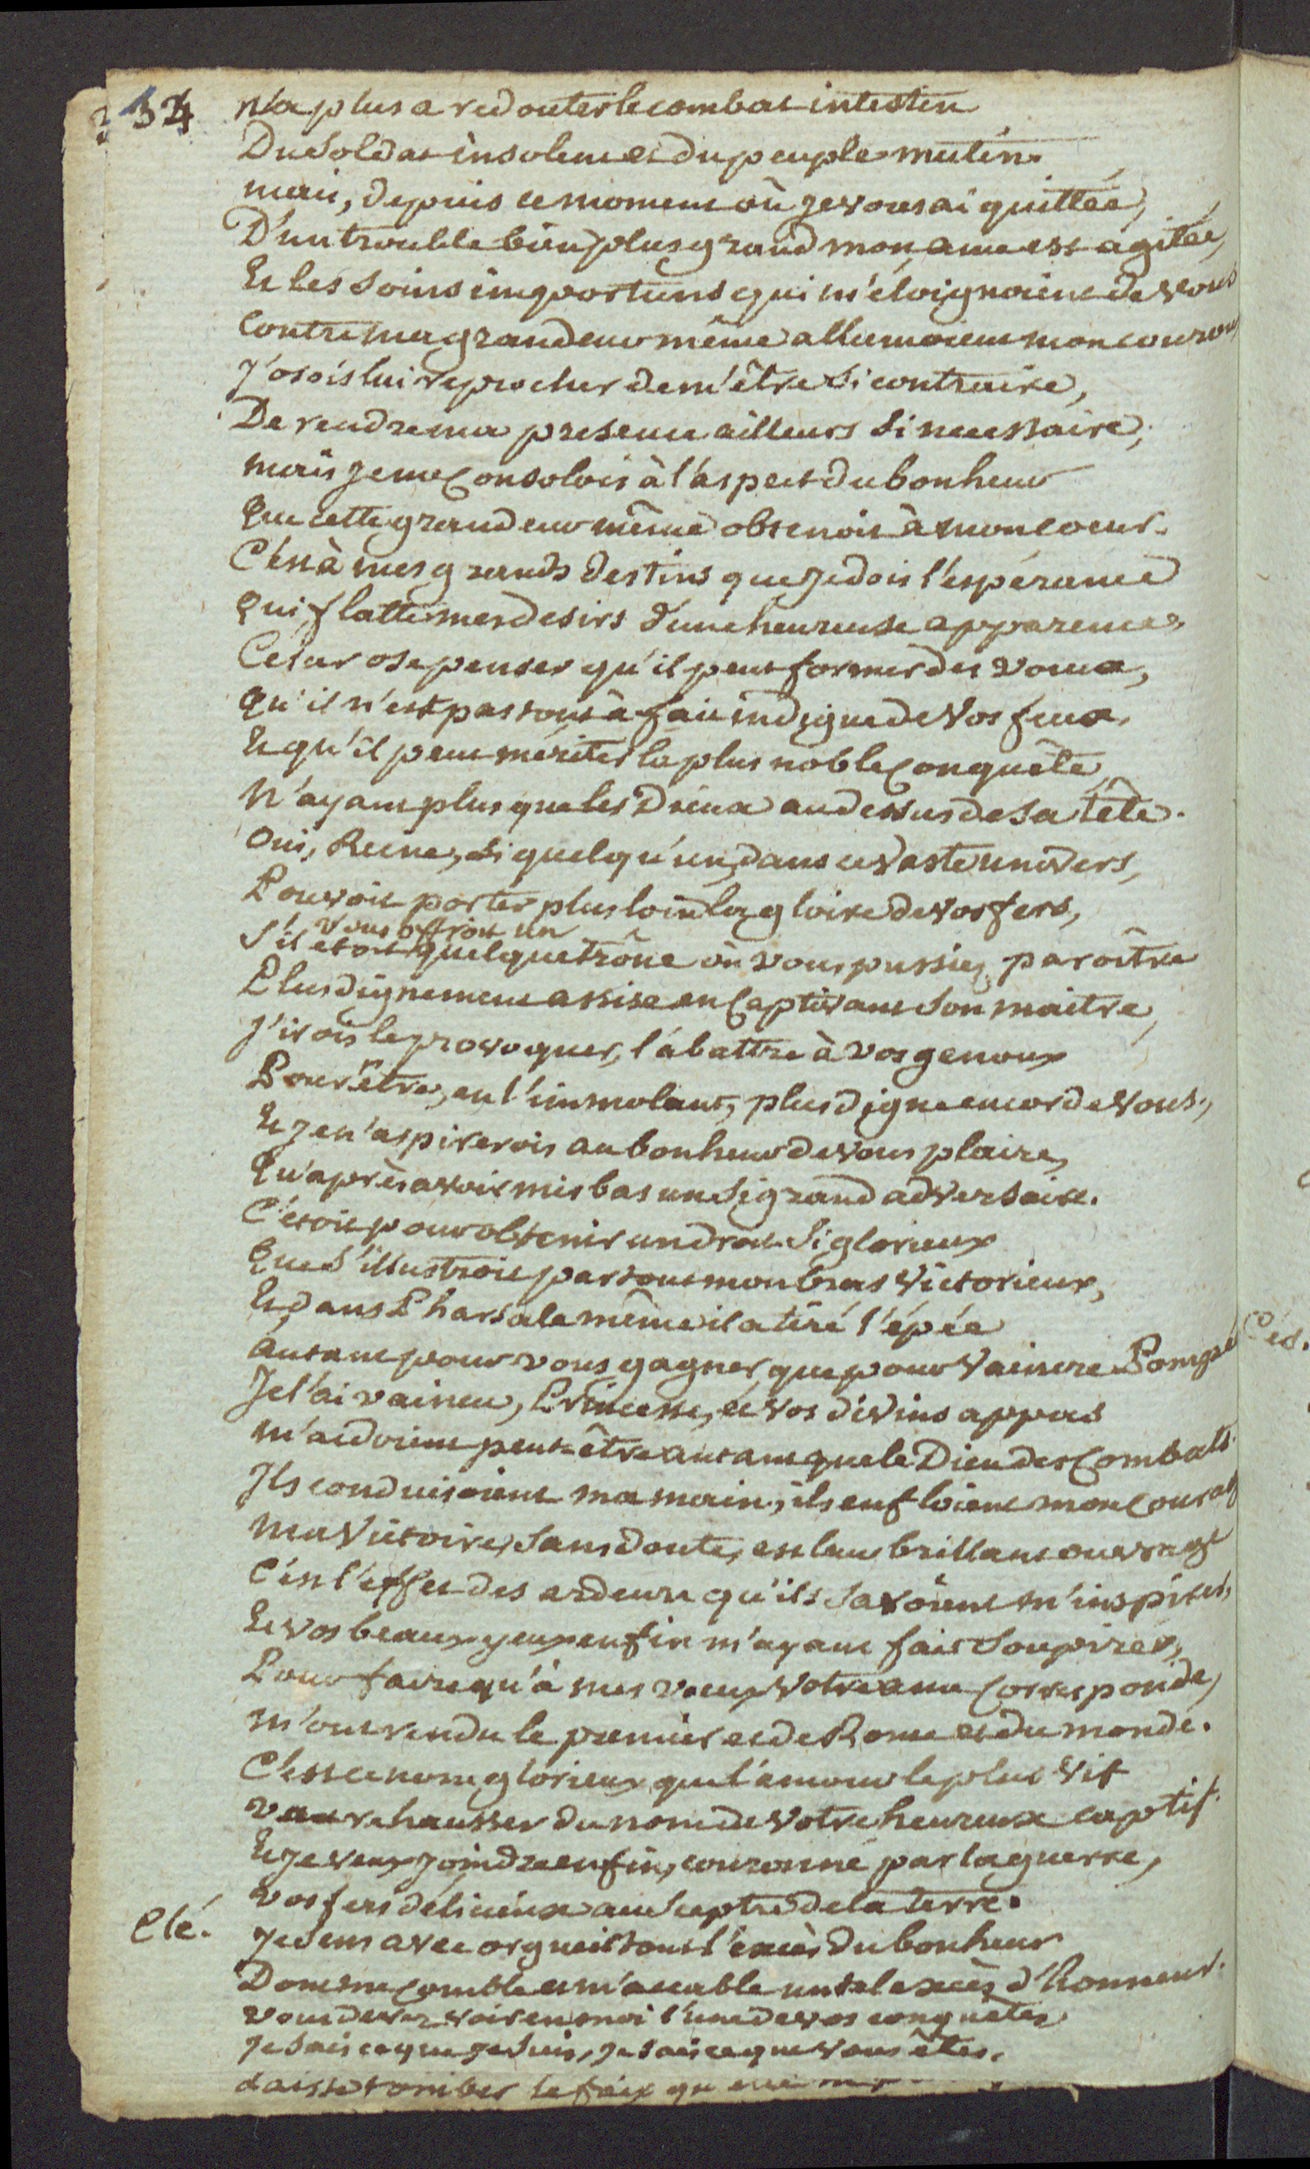 34
n'a plus a redouter le combat intestin
Du soldat insolent et du peuple mutin.
mais, depuis le moment où je vous ai quittée,
D'un trouble bien plus grand mon ame est agitée,
Et les soins importuns qui m'éloignoient de vous
Contre ma grandeur même allumoient mon couroux
J'osois lui reprocher de m'être si contraire,
De rendre ma presence ailleurs si necessaire;
mais je me consolois à l'aspect du bonheur
Que cette grandeur même obtenoit à mon coeur.
C'est à mes grands destins que je dois l'espérance
Qui flatte mes desirs d'une heureuse apparence.
César ose penser qu'il peut former des voeux,
Qu'il n'est pas tout à fait indigne de vos feux,
Et qu'il peut mériter la plus noble conquête,
N'ayant plus que les Dieux au dessus de sa tête.
Oui, Reine, si quelqu'un, dans ce vaste univers,
Pouvoit porter plus loin la gloire de vos fers,
vous offroit un
S'il étoit quelque trône où vous pussiez paroître
Plus dignement assise en captivant son maitre,
J'irois le provoquer, l'abattre à vos genoux
Pour être, en l'immolant, plus digne encor de vous,
Et je n'aspirerois au bonheur de vous plaire,
Qu'après avoir mis bas un si grand adversaire.
C'étoit pour obtenir un droit si glorieux
Que s'illustroit partout mon bras victorieux,
Et dans Pharsale même il a tiré l'épée
autant pour vous gagner que pour vaincre Pompée
Je l'ai vaincu, Princesse, et vos divins appas
m'aidoient peut-être autant que le Dieu des combats.
Ils conduisoient ma main, ils enfloient mon courage
Ma victoire, sans doute, est leur brillant ouvrage
C'est l'effet des ardeurs qu'ils savoient m'inspirer,
Et vos beaux yeux enfin m'ayant fait soupirer,
Pour faire qu'à mes voeux votre ame corresponde,
m'ont rendu le premier et de Rome et du monde.
C'est ce nom glorieux que l'amour le plus vif
veut rehausser du nom de votre heureux captif.
Et je veux joindre enfin, couronné par la guerre,
vos fers délicieux au sceptre de la terre.
Clé. Je sens avec orgueil tout l'excès du bonheur
Dont me comble et m'accable un tel excès d'honneur.
vous devez voir en moi l'une de vos conquêtes
Je sais ce que je suis, je sais ce que vous êtes.
Laisse tomber le faix
Cés.